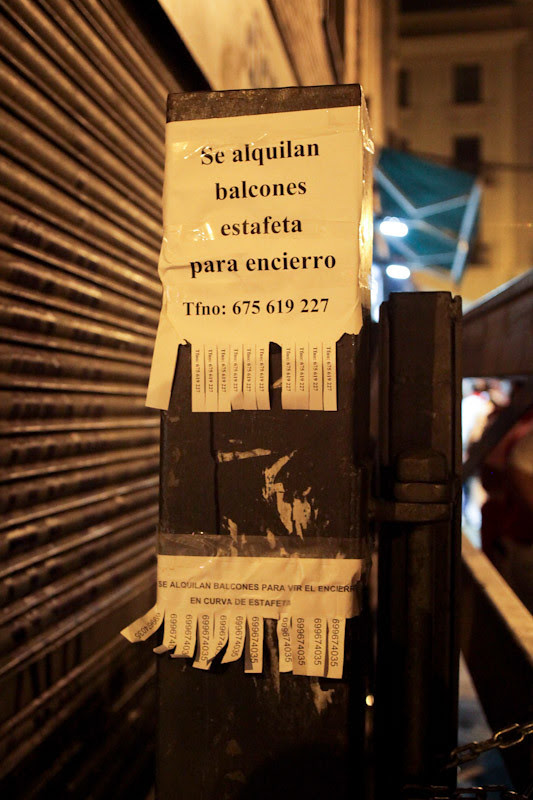 Se alquilan
balcones
estafeta
para encierro
Tfno: 675 619 227
Tfno: 675 619 227
Tfno: 675 619 227
Tfno: 675 619 227
Tfno: 675 619 227
Tfno: 675 619 227
Tfno: 675 619 227
Tfno: 675 619 227
Tfno: 675 619 227
Tfno: 675 619 227
Tfno: 675 619 227
SE ALQUILAN BALCONES PARA VIR EL ENCIERR
EN CURVA DE ESTAFETA
699674035
699674035
699674035
699674035
699674035
699674035
699674035
699674035
699674035
699674035